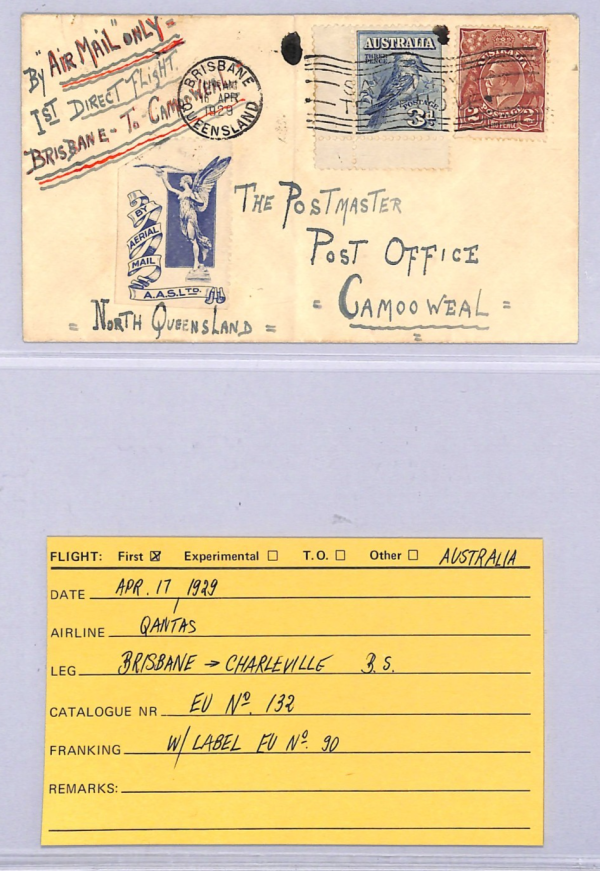 By "AIR MAIL" ONLY =
1ST DIRECT FLIGHT.
BRISBANE - To CAMOOWEAL
BRISBANE
16 APR
1929
QUEENSLAND
AUSTRALIA
THREE PENCE
POSTAGE
3d
AUSTRALIA
POSTAGE
2 TWO PENCE 2
BY
AERIAL
MAIL
A.A.S. LTD.
THE POSTMASTER
POST OFFICE
= CAMOOWEAL =
= NORTH QUEENSLAND =
FLIGHT: First ☒ Experimental ☐ T.O. ☐ Other ☐ AUSTRALIA
DATE APR. 17, 1929
AIRLINE QANTAS
LEG BRISBANE → CHARLEVILLE B.S.
CATALOGUE NR EU Nº. 132
FRANKING W/ LABEL EU Nº. 90
REMARKS: